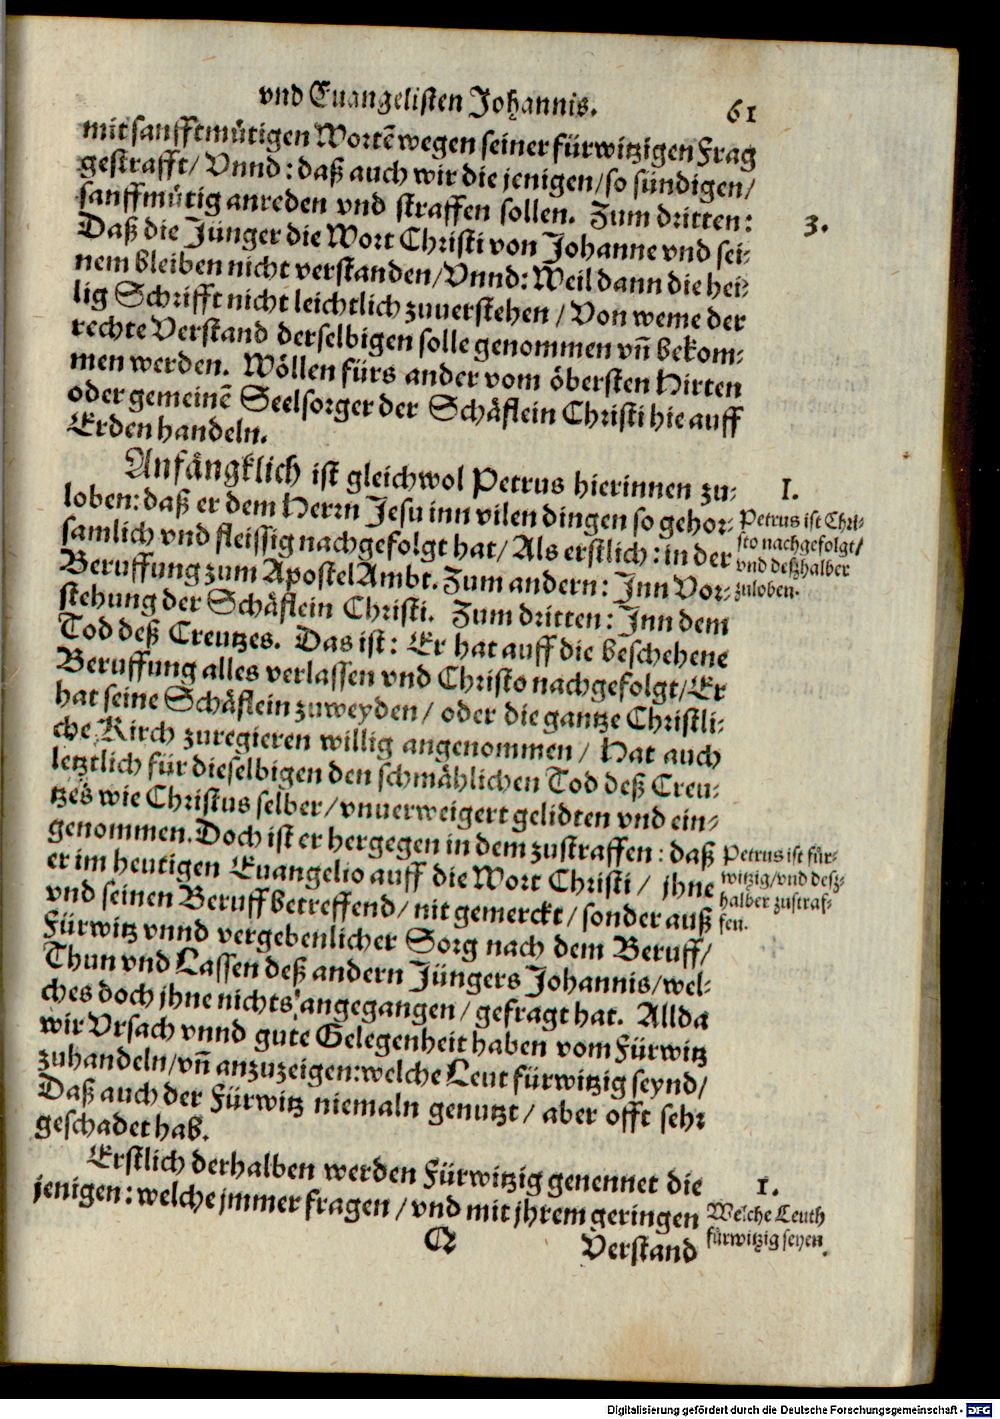 vnd Euangelisten Johannis. 61
mit sanfftmütigen Wortẽ wegen seiner fürwitzigen Frag
gestrafft/ Vnnd: daß auch wir die jenigen/ so sündigen/
sanffmütig anreden vnd straffen sollen. Zum dritten:
3.
Daß die Jünger die Wort Christi von Johanne vnd sei-
nem bleiben nicht verstanden/ Vnnd: Weil dann die hei-
lig Schrifft nicht leichtlich zuuerstehen / Von weme der
rechte Verstand derselbigen solle genommen vñ bekom-
men werden. Wöllen fürs ander vom öbersten Hirten
oder gemeinẽ Seelsorger der Schäflein Christi hie auff
Erden handeln.
Anfängklich ist gleichwol Petrus hierinnen zu-
1.
loben: daß er dem Herrn Jesu inn vilen dingen so gehor-
samlich vnd fleissig nachgefolgt hat/ Als erstlich: in der
Beruffung zum Apostel Ambt. Zum andern: Inn Vor-
stehung der Schäflein Christi. Zum dritten: Inn dem
Petrus ist Chri-
sto nachgefolgt/
vnd deßhalber
zuloben.
Tod deß Creutzes. Das ist: Er hat auff die beschehene
Beruffung alles verlassen vnd Christo nachgefolgt/ Er
hat seine Schäflein zuweyden / oder die gantze Christli-
che Kirch zuregieren willig angenommen / Hat auch
letztlich für dieselbigen den schmählichen Tod deß Creu-
tzes wie Christus selber/ vnuerweigert gelidten vnd ein-
genommen. Doch ist er hergegen in dem zustraffen: daß
er im heutigen Euangelio auff die Wort Christi / jhne
vnd seinen Beruff betreffend/ nit gemerckt / sonder auß
Petrus ist für-
witzig/ vnd desz-
halber zustraf-
fen.
Fürwitz vnnd vergebenlicher Sorg nach dem Beruff/
Thun vnd Lassen deß andern Jüngers Johannis/ wel-
ches doch jhne nichts angegangen / gefragt hat. Allda
wir Vrsach vnnd gute Gelegenheit haben vom Fürwitz
zuhandeln/ vñ anzuzeigen: welche Leut fürwitzig seynd/
Daß auch der Fürwitz niemaln genutzt / aber offt sehr
geschadet hab.
Erstlich derhalben werden Fürwitzig genennet die
1.
jenigen: welche jmmer fragen / vnd mit jhrem geringen
Welche Leuth
fürwitzig seyen.
Q Verstand
Digitalisierung gefördert durch die Deutsche Forschungsgemeinschaft - DFG